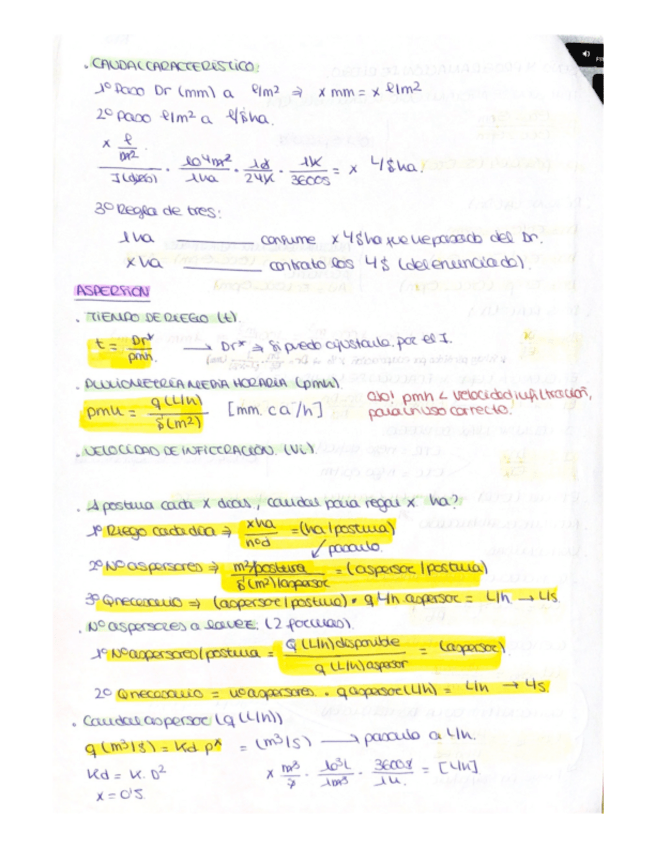 . CAUDAL CARACTERÍSTICO:
1º Paso Dr (mm) a l/m² ⇒ x mm = x l/m²
2º Paso l/m² a l/s ha.
x l/m² / I (días) · 10⁴m²/1ha · 1d/24h · 1h/3600s = x l/s ha.
3º Regla de tres:
1 ha ______ consume x l/s ha que ve pasado del Dr.
x ha ______ contrato los l/s (del enunciado).
ASPERSIÓN
. TIEMPO DE RIEGO (t).
t = Dr*/pmh. → Dr* ⇒ Si puedo ajustarlo, por el I.
. PLUVIOMETRÍA MEDIA HORARIA (pmh).
pmh = q (L/h) / s (m²) [mm. ca/h]
Ojo! pmh < velocidad infiltración,
para un uso correcto.
. VELOCIDAD DE INFILTRACIÓN. (Vi).
. 1 postura cada x días, caudal para regar x ha?
1º Riego cada día ⇒ x ha / nºd = (ha/postura)
pasarlo.
2º Nº aspersores ⇒ m²/postura / s (m²)/aspersor = (aspersor/postura)
3º Q necesario ⇒ (aspersor/postura) · q L/h aspersor = L/h → L/s.
. Nº aspersores a la vez. (2 fórmulas).
1º Nº aspersores/postura = Q (L/h) disponible / q (L/h) aspersor = (aspersor)
2º Q necesario = nº aspersores · q aspersor (L/h) = L/h → L/s.
. Caudal aspersor (q (L/h))
q (m³/s) = Kd pˣ = (m³/s) → pasarlo a L/h.
Kd = K. D²
x m³/s · 10³L/1m³ · 3600s/1h. = [L/h]
x = 0'5.